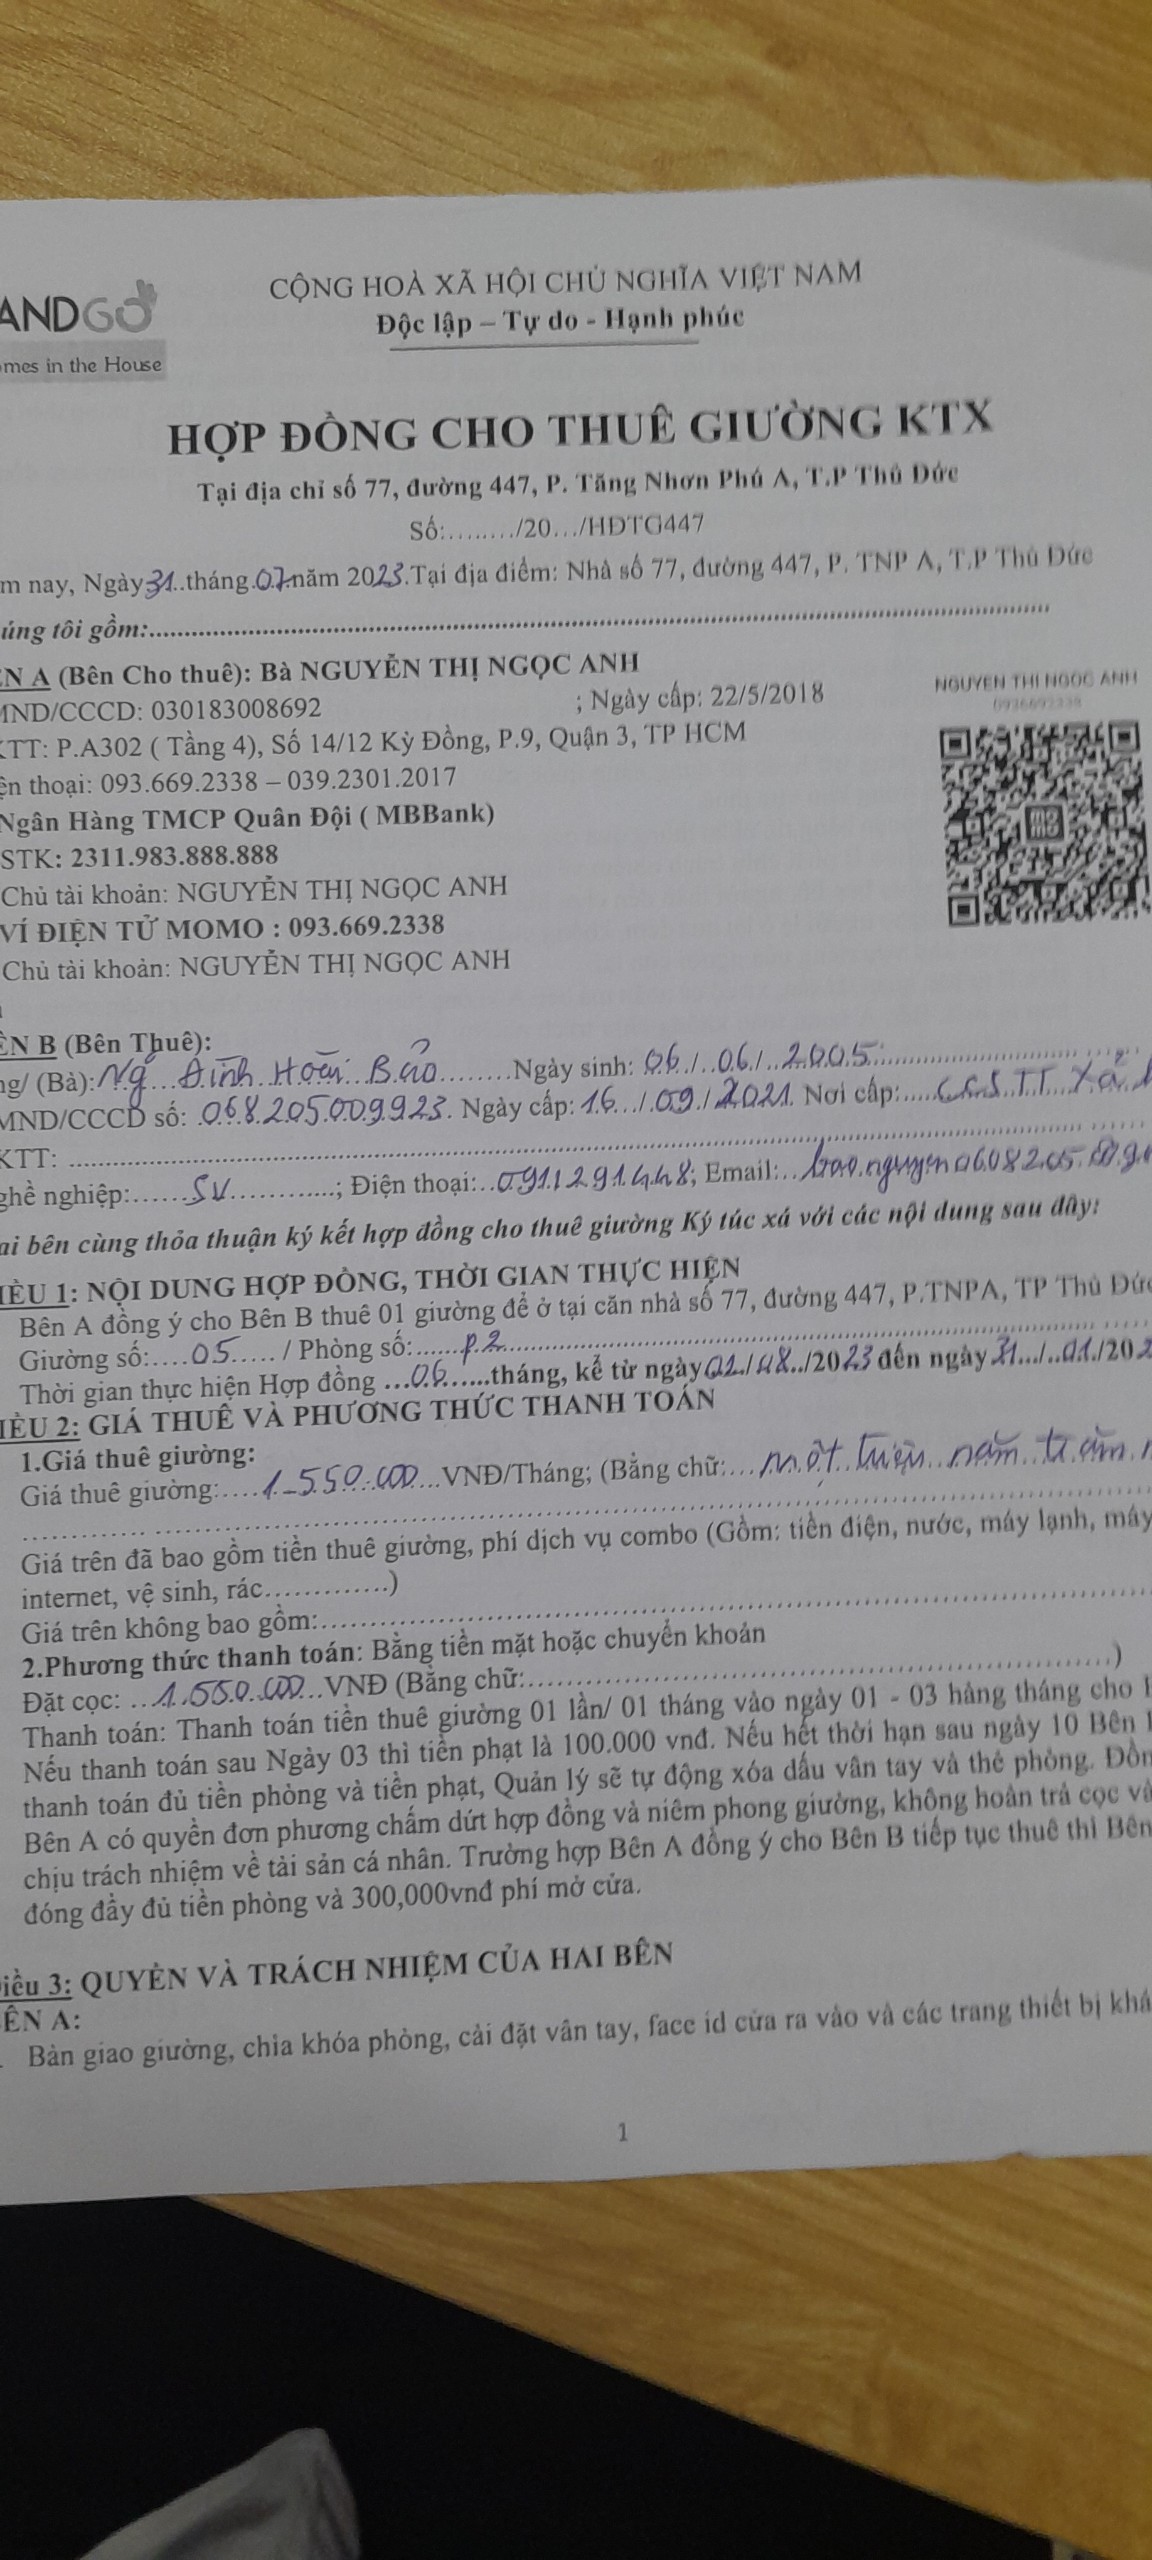 ANDGO
mes in the House
CỘNG HOÀ XÃ HỘI CHỦ NGHĨA VIỆT NAM
Độc lập – Tự do - Hạnh phúc
HỢP ĐỒNG CHO THUÊ GIƯỜNG KTX
Tại địa chỉ số 77, đường 447, P. Tăng Nhơn Phú A, T.P Thủ Đức
Số:......../20.../HĐTG447
m nay, Ngày 31..tháng.07.năm 2023.Tại địa điểm: Nhà số 77, đường 447, P. TNP A, T.P Thủ Đức
úng tôi gồm:
ÊN A (Bên Cho thuê): Bà NGUYỄN THỊ NGỌC ANH
MND/CCCD: 030183008692 ; Ngày cấp: 22/5/2018
KTT: P.A302 ( Tầng 4), Số 14/12 Kỳ Đồng, P.9, Quận 3, TP HCM
ện thoại: 093.669.2338 – 039.2301.2017
Ngân Hàng TMCP Quân Đội ( MBBank)
STK: 2311.983.888.888
Chủ tài khoản: NGUYỄN THỊ NGỌC ANH
VÍ ĐIỆN TỬ MOMO : 093.669.2338
Chủ tài khoản: NGUYỄN THỊ NGỌC ANH
NGUYEN THI NGOC ANH
0936692338
ÊN B (Bên Thuê):
ng/ (Bà): Ng Đình Hoài Bảo Ngày sinh: 06/ 06/ 2005
MND/CCCD số: 068205009923. Ngày cấp: 16/ 09/ 2021. Nơi cấp:
KTT:
ghề nghiệp: SV ; Điện thoại: 0911291448; Email:
ai bên cùng thỏa thuận ký kết hợp đồng cho thuê giường Ký túc xá với các nội dung sau đây:
IỀU 1: NỘI DUNG HỢP ĐỒNG, THỜI GIAN THỰC HIỆN
Bên A đồng ý cho Bên B thuê 01 giường để ở tại căn nhà số 77, đường 447, P.TNPA, TP Thủ Đức
Giường số: 05 / Phòng số: P.2
Thời gian thực hiện Hợp đồng 06 tháng, kể từ ngày 01/ 08 /2023 đến ngày 31/ 01/202
IỀU 2: GIÁ THUÊ VÀ PHƯƠNG THỨC THANH TOÁN
1.Giá thuê giường:
Giá thuê giường: 1.550.000 VNĐ/Tháng; (Bằng chữ: một triệu năm trăm
Giá trên đã bao gồm tiền thuê giường, phí dịch vụ combo (Gồm: tiền điện, nước, máy lạnh, máy
internet, vệ sinh, rác..............)
Giá trên không bao gồm:
2.Phương thức thanh toán: Bằng tiền mặt hoặc chuyển khoản
Đặt cọc: 1.550.000 VNĐ (Bằng chữ: )
Thanh toán: Thanh toán tiền thuê giường 01 lần/ 01 tháng vào ngày 01 - 03 hàng tháng cho
Nếu thanh toán sau Ngày 03 thì tiền phạt là 100.000 vnđ. Nếu hết thời hạn sau ngày 10 Bên
thanh toán đủ tiền phòng và tiền phạt, Quản lý sẽ tự động xóa dấu vân tay và thẻ phòng. Đồn
Bên A có quyền đơn phương chấm dứt hợp đồng và niêm phong giường, không hoàn trả cọc và
chịu trách nhiệm về tài sản cá nhân. Trường hợp Bên A đồng ý cho Bên B tiếp tục thuê thì Bên
đóng đầy đủ tiền phòng và 300,000vnđ phí mở cửa.
iều 3: QUYỀN VÀ TRÁCH NHIỆM CỦA HAI BÊN
ÊN A:
Bàn giao giường, chìa khóa phòng, cài đặt vân tay, face id cửa ra vào và các trang thiết bị khá
1